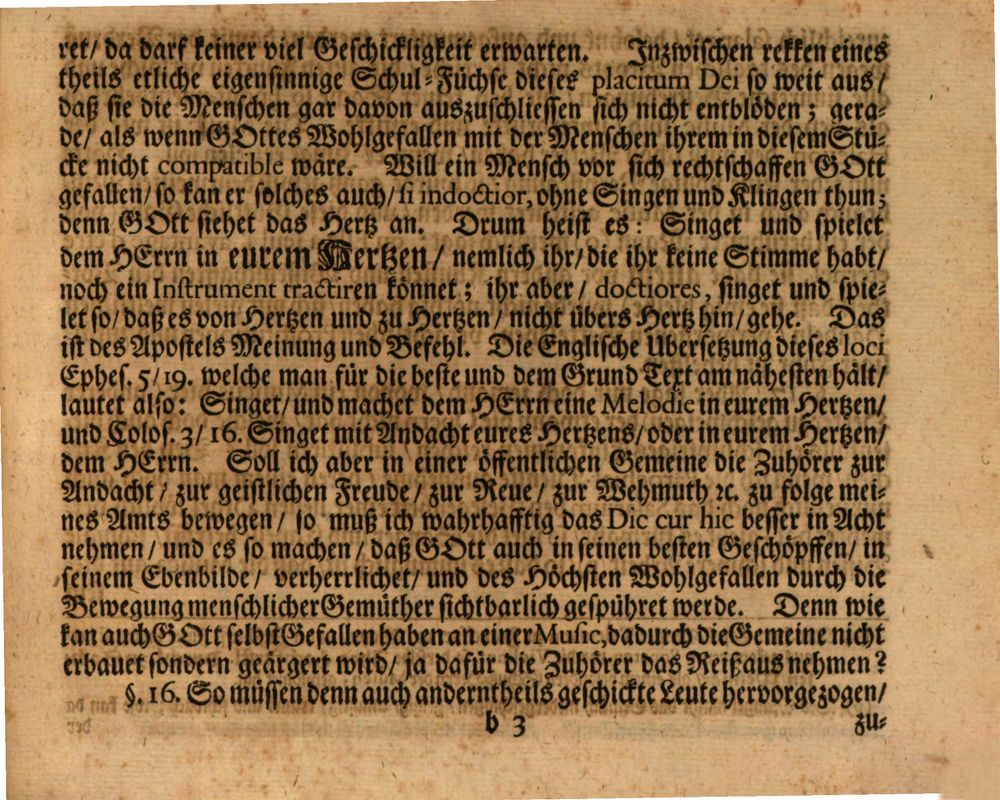 ret/ da darf keiner viel Geschickligkeit erwarten. Inzwischen rekken eines
theils etliche eigensinnige Schul-Füchse dieses placitum Dei so weit aus/
daß sie die Menschen gar davon auszuschliessen sich nicht entblöden; gera-
de/ als wenn GOttes Wohlgefallen mit der Menschen ihrem in diesem Stü-
cke nicht compatible wäre. Will ein Mensch vor sich rechtschaffen GOtt
gefallen/ so kan er solches auch/ si indoctior, ohne Singen und Klingen thun;
denn GOtt siehet das Hertz an. Drum heist es: Singet und spielet
dem HErrn in eurem Hertzen/ nemlich ihr/ die ihr keine Stimme habt/
noch ein Instrument tractiren könnet; ihr aber/ doctiores, singet und spie-
let so/ daß es von Hertzen und zu Hertzen/ nicht übers Hertz hin/ gehe. Das
ist des Apostels Meinung und Befehl. Die Englische Ubersetzung dieses loci
Ephes. 5/19. welche man für die beste und dem Grund Text am nähesten hält/
lautet also: Singet/ und machet dem HErrn eine Melodie in eurem Hertzen/
und Colos. 3/16. Singet mit Andacht eures Hertzens/ oder in eurem Hertzen/
dem HErrn. Soll ich aber in einer öffentlichen Gemeine die Zuhörer zur
Andacht/ zur geistlichen Freude/ zur Reue/ zur Wehmuth ꝛc. zu folge mei-
nes Amts bewegen/ so muß ich wahrhafftig das Dic cur hic besser in Acht
nehmen/ und es so machen/ daß GOtt auch in seinen besten Geschöpffen/ in
seinem Ebenbilde/ verherrlichet/ und des Höchsten Wohlgefallen durch die
Bewegung menschlicher Gemüther sichtbarlich gespühret werde. Denn wie
kan auch GOtt selbst Gefallen haben an einer Music, dadurch die Gemeine nicht
erbauet sondern geärgert wird/ ja dafür die Zuhörer das Reißaus nehmen?
§. 16. So müssen denn auch anderntheils geschickte Leute hervorgezogen/
b 3 zu-